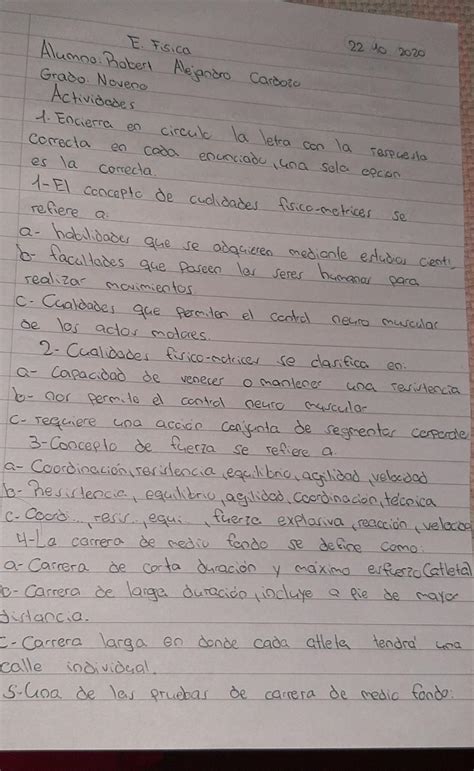 E. Fisica
22 10 2020
Alumno: Robert Alejandro Cardozo
Grado: Noveno
Actividades
1. Encierra en circulo la letra con la respuesta
correcta en cada enunciado, una sola opcion
es la correcta.
1-El concepto de cualidades fisico-motrices se
refiere a:
a- habilidades que se adquieren mediante estudios centi
b- facultades que poseen los seres humanos para
realizar movimientos.
c- Cualdades que permiten el control neuro muscular
de los actos motores.
2- Cualidades fisico-motrices se clasifica en:
a- Capacidad de veneces o mantener una resistencia
b- nos permite el control neuro muscular
c- requiere una acción conjunta de segmentos corporale
3-Concepto de fuerza se refiere a
a- Coordinación, resistencia, equilibrio, agilidad, velocidad
b- Resistencia, equilibrio, agilidad, coordinación, técnica
c- Coord, resis, equi, fuerza explosiva, reacción, velocidad
4-La carrera de medio fondo se define como:
a- Carrera de corta duración y máximo esfuerzo (atleta)
b- Carrera de larga duración, incluye a pie de mayor
distancia.
c- Carrera larga en donde cada atleta tendrá una
calle individual.
5-Una de las pruebas de carrera de medio fondo: